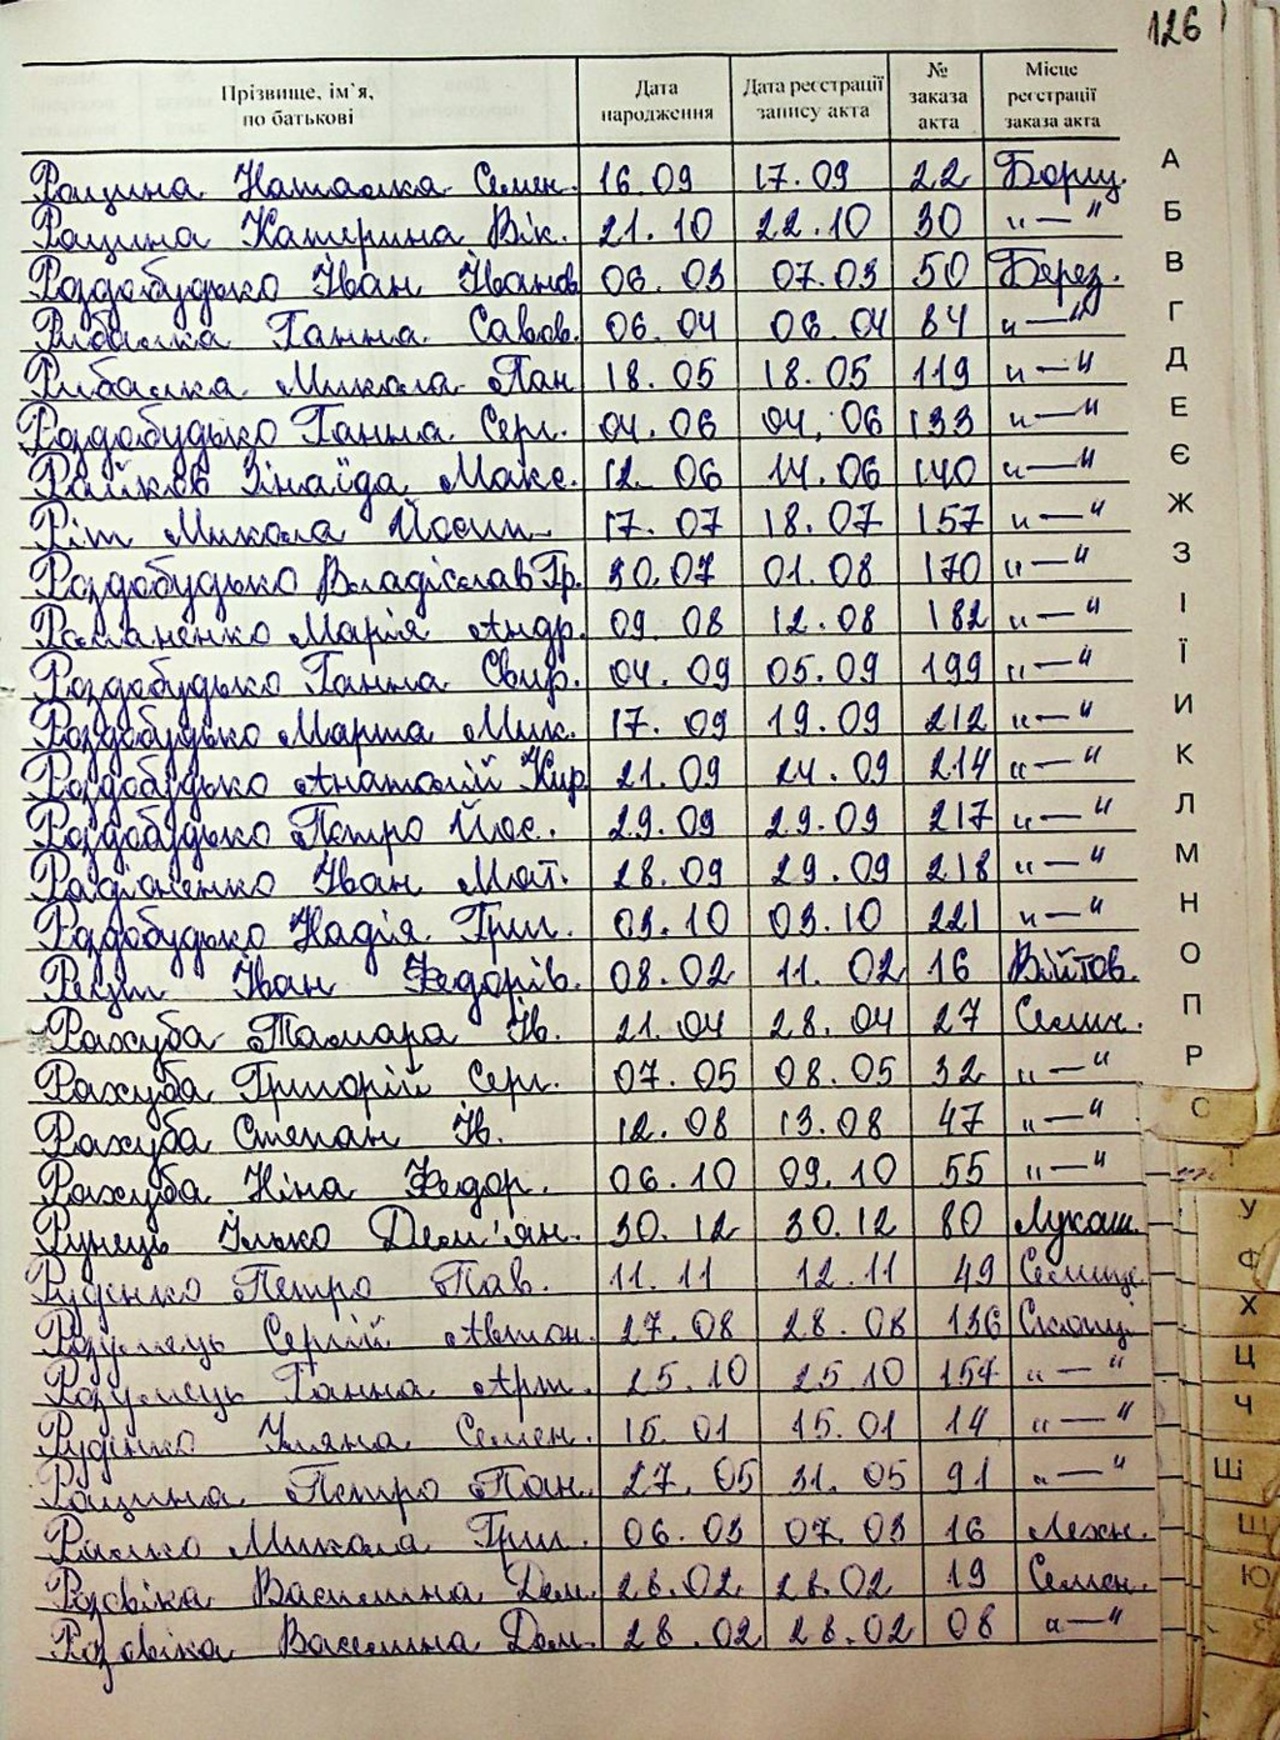 126
Прізвище, ім'я, по батькові Дата народження Дата реєстрації запису акта № заказа акта Місце реєстрації заказа акта
Ращина Наталка Семен. 16.09 17.09 22 Борщ.
Ращина Катерина Вік. 21.10 22.10 30 "—"
Роздобудько Іван Іванов 06.03 07.03 50 Берез.
Рибалка Ганна Савов. 06.04 06.04 84 "—"
Рибалка Микола Пан 18.05 18.05 119 "—"
Роздобудько Ганна Серг. 04.06 04.06 133 "—"
Райков Зінаїда Макс. 12.06 14.06 140 "—"
Ріт Микола Йосип 17.07 18.07 157 "—"
Роздобудько Владіслав Гр. 30.07 01.08 170 "—"
Романенко Марія Андр. 09.08 12.08 182 "—"
Роздобудько Ганна Свир. 04.09 05.09 199 "—"
Роздобудько Марта Мик. 17.09 19.09 212 "—"
Роздобудько Анатолій Кир 21.09 24.09 214 "—"
Роздобудько Петро Йос. 29.09 29.09 217 "—"
Радіоненко Іван Мат. 28.09 29.09 218 "—"
Роздобудько Надія Григ. 03.10 03.10 221 "—"
Іван Федорів. 08.02 11.02 16 Війтов.
Рахуба Тамара Ів. 21.04 28.04 27 Селич.
Рахуба Григорій Серг. 07.05 08.05 32 "—"
Рахуба Степан Ів. 12.08 13.08 47 "—"
Рахуба Ніна Федор. 06.10 09.10 55 "—"
Рунець Ілько Дем'ян. 30.12 30.12 80 Лукаш.
Руденко Петро Пав. 11.11 12.11 49 Селище
Розумець Сергій Автон. 27.08 28.08 136 Скопці
Розумець Ганна Арт. 25.10 25.10 154 "—"
Руденко Уляна Семен. 15.01 15.01 14 "—"
Ращина Петро Пан. 27.05 31.05 91 "—"
Микола Григ. 06.03 07.03 16 Лехн.
Розовіка Василина Дем. 28.02 28.02 19 Семен.
Розовіка Василина Дем. 28.02 28.02 08 "—"
А
Б
В
Г
Д
Е
Є
Ж
З
І
Ї
И
К
Л
М
Н
О
П
Р
С
Т
У
Ф
Х
Ц
Ч
Ш
Щ
Ю
Я